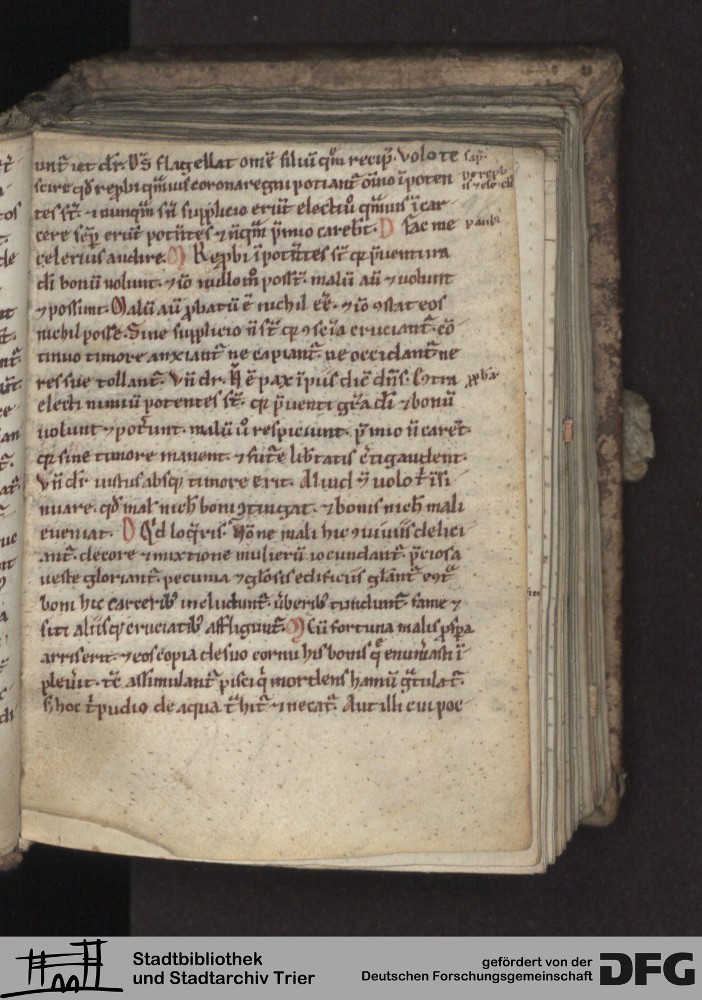 unt̃ ict dr̃. D̃s flagellat om̃e filiũ qm̃ recip̃. Volo te
scire qđ rep̃bi qm̃uis coronaregni potiant̃ om̃no ĩpoten
tes st̃. ⁊ nunqm̃ sñ supplicio erũt electi ũ qm̃uis ĩ car
cere sẽp erũt potñtes ⁊ ñqm̃ p̃mio carebt̃. D fac me
celerius audire. M Rep̃bi ĩpotñtes st̃ qꝛ p̃uentura
di bonũ nolunt. ⁊ iõ nullom̃ posst̃. malũ aũ ⁊ uolunt
⁊ possunt. Malũ aũ ꝓbatũ ẽ nichil eẽ. ⁊ iõ ꝯstat eos
nichil posse. Sine supplicio ñ st̃ qꝛ ꝯscĩa cruciant̃. cõ
tinuo timore anxiant̃ ne capiant̃. ne occidant̃ ne
res sue tollant̃. Vñ dr̃. Ñ ẽ pax ĩpiis dic̃ dñs. Cõtra
electi nimiũ potentes st̃. qꝛ p̃uenti gr̃a di ⁊ bonũ
uolunt ⁊ potẽunt. malũ ũ respiciunt. p̃mio ñ caret̃.
qꝛ sine timore manent. ⁊ futẽ libtatis c̃ti gaudent.
Vñ dr̃ iustus absqꝫ timore erit. Aliud q̃ uolo t̃ ĩsi
nuare. qđ mal nich boni ꝯtingat. ⁊ bonis nich mali
eueniat. D Qd loq̃ris. Nõne mali hic ꝯuiuiis delici
ant̃. decore ⁊ mixtione mulierũ iocundant̃. p̃ciosa
ueste gloriant̃. pecunia ⁊ glõsis edificiis glãnt̃ eq̃t
boni hic carcerib includunt̃. ũberib tundunt̃. fame ⁊
siti aliisqꝫ cruciatib affligunt̃. M Cũ fortuna malis ꝓspa
arriserit. ⁊ eos copia de suo cornu his bonis q̃ enumasti ĩ
pleũit. tc̃ assimulant̃ pisci q̃ mordens hamũ gr̃tulat̃.
s hoc t̃pudio de aqua t̃hit̃ ⁊ necat̃. Aut illi cui poc
Stadtbibliothek
und Stadtarchiv Trier
gefördert von der
Deutschen Forschungsgemeinschaft
DFG